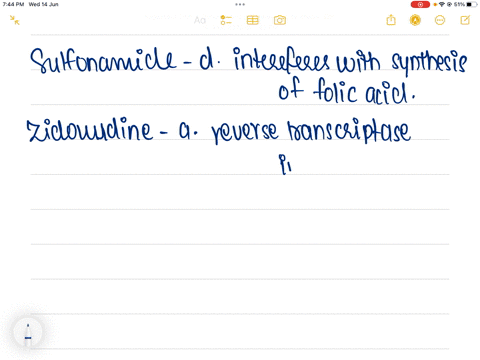 7:44 PM Wed 14 Jun
51%
Aa
Sulfonamide - d. interferes with synthesis
of folic acid.
Zidovudine - a. reverse transcriptase